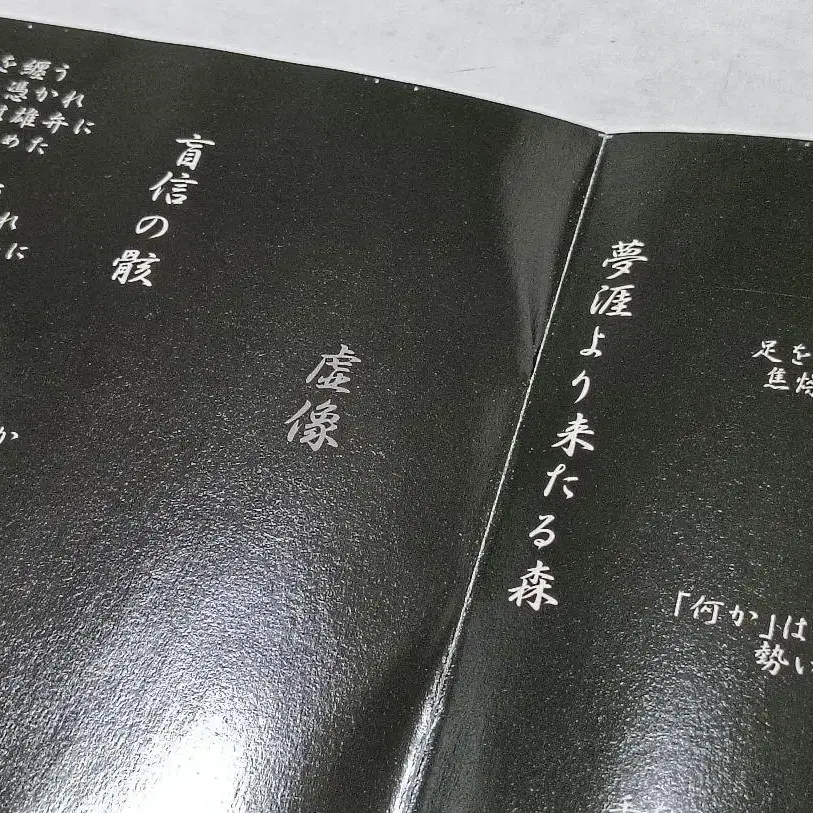 を纏う
憑かれ
雄弁に
めた
れ
に
か
盲信の骸
虚像
夢涯より来たる森
足を
焦
「何か」は
勢い